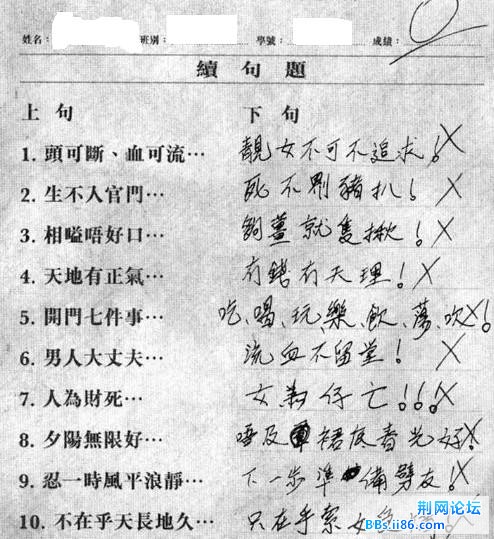 姓名: 班別: 學號: 成績: 0
續句題
上句 下句
1. 頭可斷、血可流… 靚女不可不追求! X
2. 生不入官門… 死不豬扒! X
3. 相嗌唔好口… 夠薑就隻揪! X
4. 天地有正氣… 有錢有天理! X
5. 開門七件事… 吃、喝、玩、樂、飲、蕩、吹! X
6. 男人大丈夫… 流血不留堂! X
7. 人為財死… 女為仔亡!!! X
8. 夕陽無限好… 唔及裙底春光好! X
9. 忍一時風平浪靜… 下一步準備劈友! X
10. 不在乎天長地久… 只在乎索女
荆网论坛
BBs.ii86.com